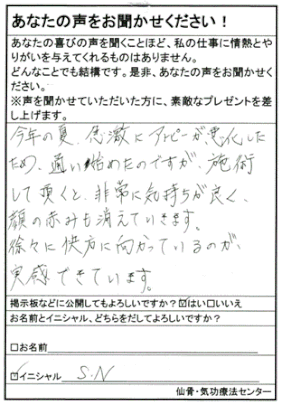 あなたの声をお聞かせください！
あなたの喜びの声を聞くことほど、私の仕事に情熱とや
りがいを与えてくれるものはありません。
どんなことでも結構です。是非、あなたの声をお聞かせく
ださい。
※声を聞かせていただいた方に、素敵なプレゼントを差
し上げます。
今年の夏、急激にアトピーが悪化した
ため、通い始めたのですが、施術
して頂くと、非常に気持ちが良く、
顔の赤みも消えていきます。
徐々に快方に向かっているのが、
実感できています。
掲示板などに公開してもよろしいですか？☑はい□いいえ
お名前とイニシャル、どちらをだしてよろしいですか？
□お名前
☑イニシャル S.N
仙骨・気功療法センター